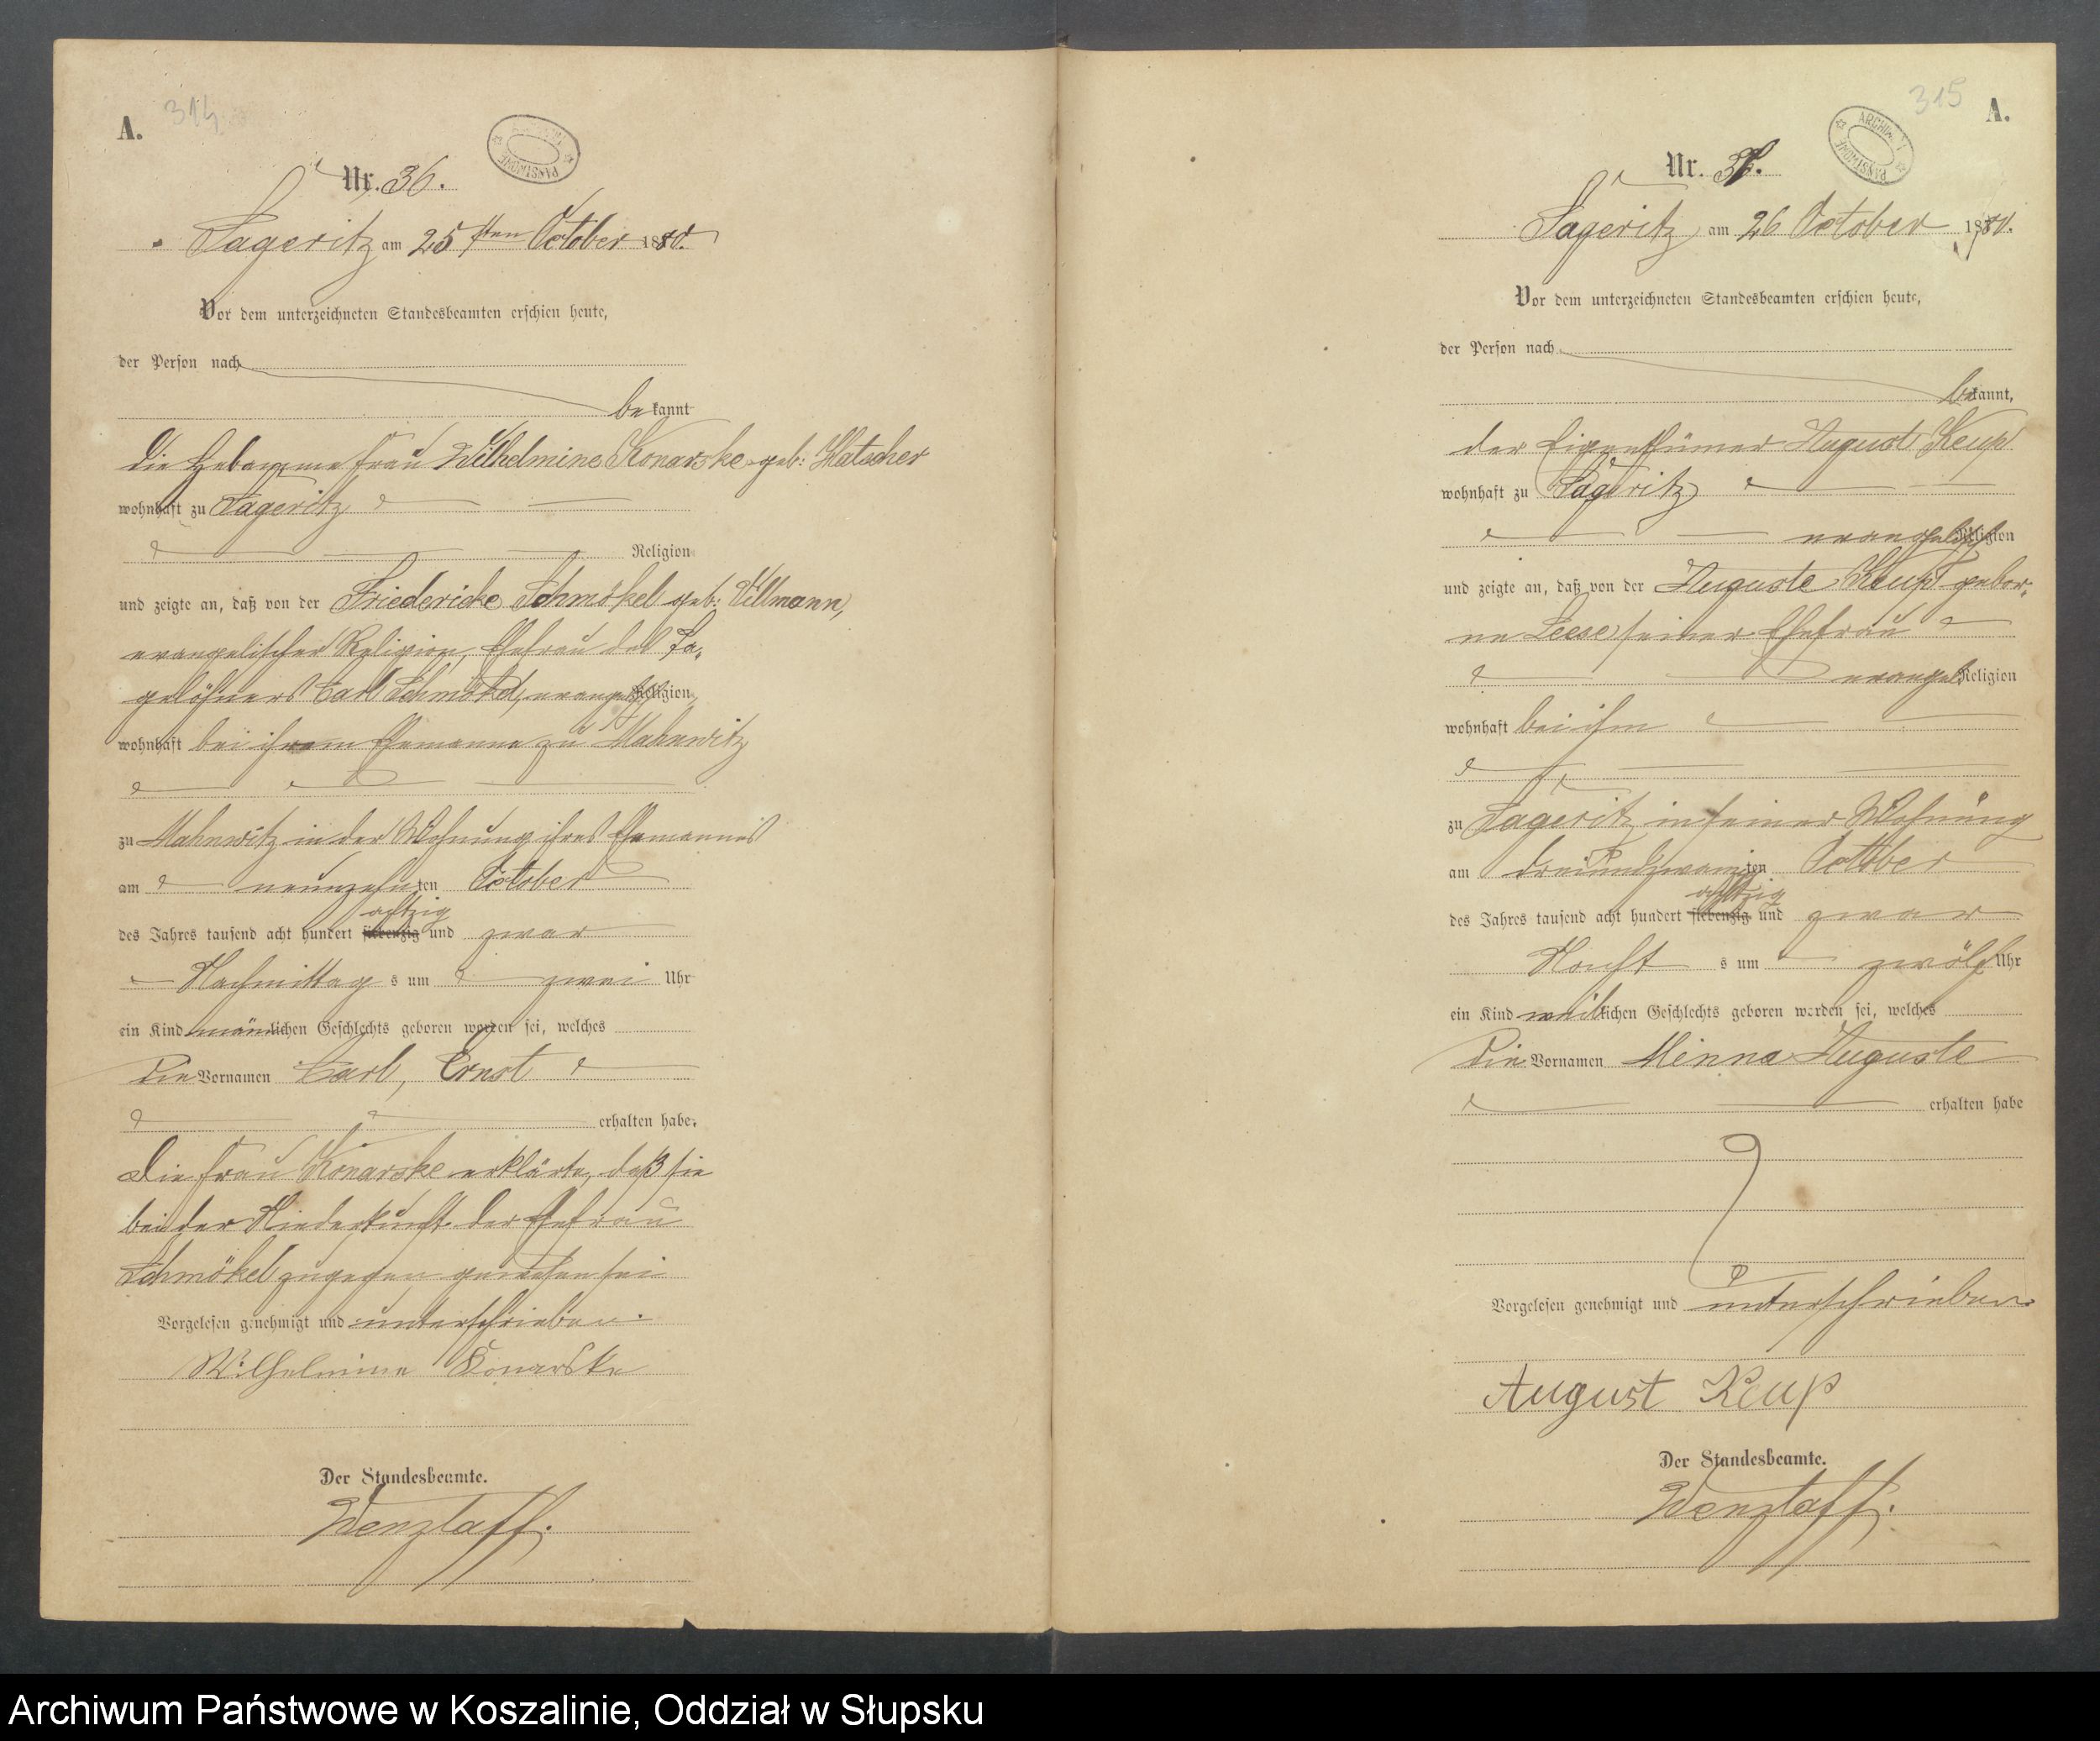 A.
314
ARCHIWUM PAŃSTWOWE
Nr. 36.
Sageritz am 25ten October 1880.
Vor dem unterzeichneten Standesbeamten erschien heute,
der Person nach
bekannt
die Hebamme Frau Wilhelmine Konarske geb: Hatscher
wohnhaft zu Sageritz
Religion
und zeigte an, daß von der Friedericke Schmökel geb: Villmann,
evangelischer Religion, Ehefrau des Ta-
gelöhners Carl Schmökel, evangelisch Religion,
wohnhaft bei ihrem Ehemanne zu Mahnwitz
zu Mahnwitz in der Wohnung ihres Ehemannes
am neunzehnten October
achtzig
des Jahres tausend acht hundert siebenzig und zwar
Nachmittag s um zwei Uhr
ein Kind mänlichen Geschlechts geboren worden sei, welches
die Vornamen Carl, Ernst
erhalten habe.
Die Frau Konarske erklärte, daß sie
bei der Niederkunft der Ehefrau
Schmökel zugegen gewesen sei
Vorgelesen genehmigt und unterschrieben.
Wilhelmine Konarske
Der Standesbeamte.
Wenzlaff.
315
A.
ARCHIWUM PAŃSTWOWE
Nr. 37.
Sageritz am 26 October 1880.
Vor dem unterzeichneten Standesbeamten erschien heute,
der Person nach
bekannt,
der Eigenthümer August Keup
wohnhaft zu Sageritz
evangelisch Religion
und zeigte an, daß von der Auguste Keup gebor-
ne Leese seiner Ehefrau
evangel. Religion
wohnhaft bei ihm
zu Sageritz in seiner Wohnung
am dreiundzwanzigten October
achtzig
des Jahres tausend acht hundert siebenzig und zwar
Nacht s um zwölf Uhr
ein Kind weiblichen Geschlechts geboren worden sei, welches
die Vornamen Minna Auguste
erhalten habe
Vorgelesen genehmigt und unterschrieben
August Keup
Der Standesbeamte.
Wenzlaff.
Archiwum Państwowe w Koszalinie, Oddział w Słupsku